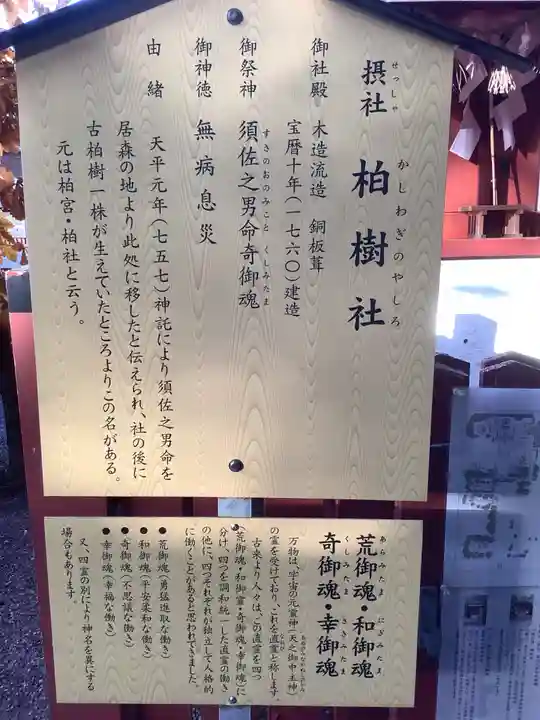 せっしゃ
摂社 柏樹社
かしわぎのやしろ
御社殿 木造流造 銅板葺
宝暦十年(一七六〇)建造
御祭神 須佐之男命奇御魂
すさのおのみこと くしみたま
御神徳 無病息災
由緒 天平元年(七五七)神託により須佐之男命を
居森の地より此処に移したと伝えられ、社の後に
古柏樹一株が生えていたところよりこの名がある。
元は柏宮・柏社と云う。
あらみたま にぎみたま
荒御魂・和御魂
くしみたま さきみたま
奇御魂・幸御魂
万物は、宇宙の元霊神(天之御中主神)
の霊を受けており、これを直霊と称します。
古来より人々は、この直霊を四つ
(荒御魂・和御霊・奇御魂・幸御魂)に
分け、四つを調和統一した直霊の働き
の他に、四つそれぞれが独立して人格的
に働くことがあると思われてきました。
●荒御魂(勇猛進取な働き)
●和御魂(平安柔和な働き)
●奇御魂(不思議な働き)
●幸御魂(幸福な働き)
又、四霊の別により神名を異にする
場合もあります。